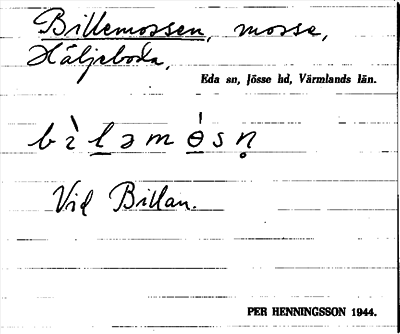 Billemossen, mosse,
Häljeboda,
Eda sn, Jösse hd, Värmlands län.
Vid Billan.
PER HENNINGSSON 1944.